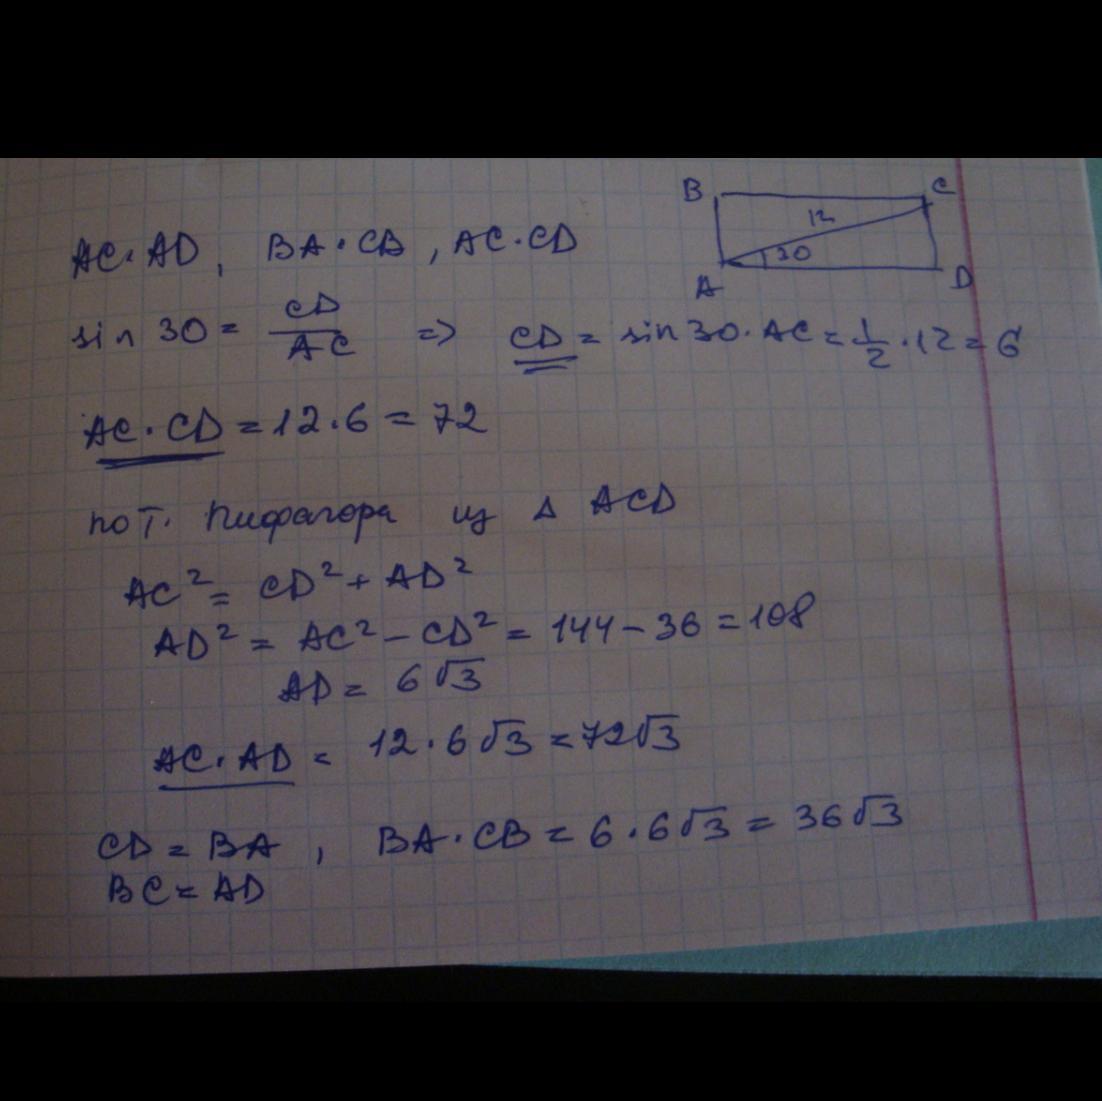 B C
12
30
A D
AC · AD, BA · CB, AC · CD
sin 30 = CD/AC => CD = sin 30 · AC = 1/2 · 12 = 6
AC · CD = 12 · 6 = 72
по т. Пифагора из Δ ACD
AC² = CD² + AD²
AD² = AC² - CD² = 144 - 36 = 108
AD = 6√3
AC · AD = 12 · 6√3 = 72√3
CD = BA, BA · CB = 6 · 6√3 = 36√3
BC = AD